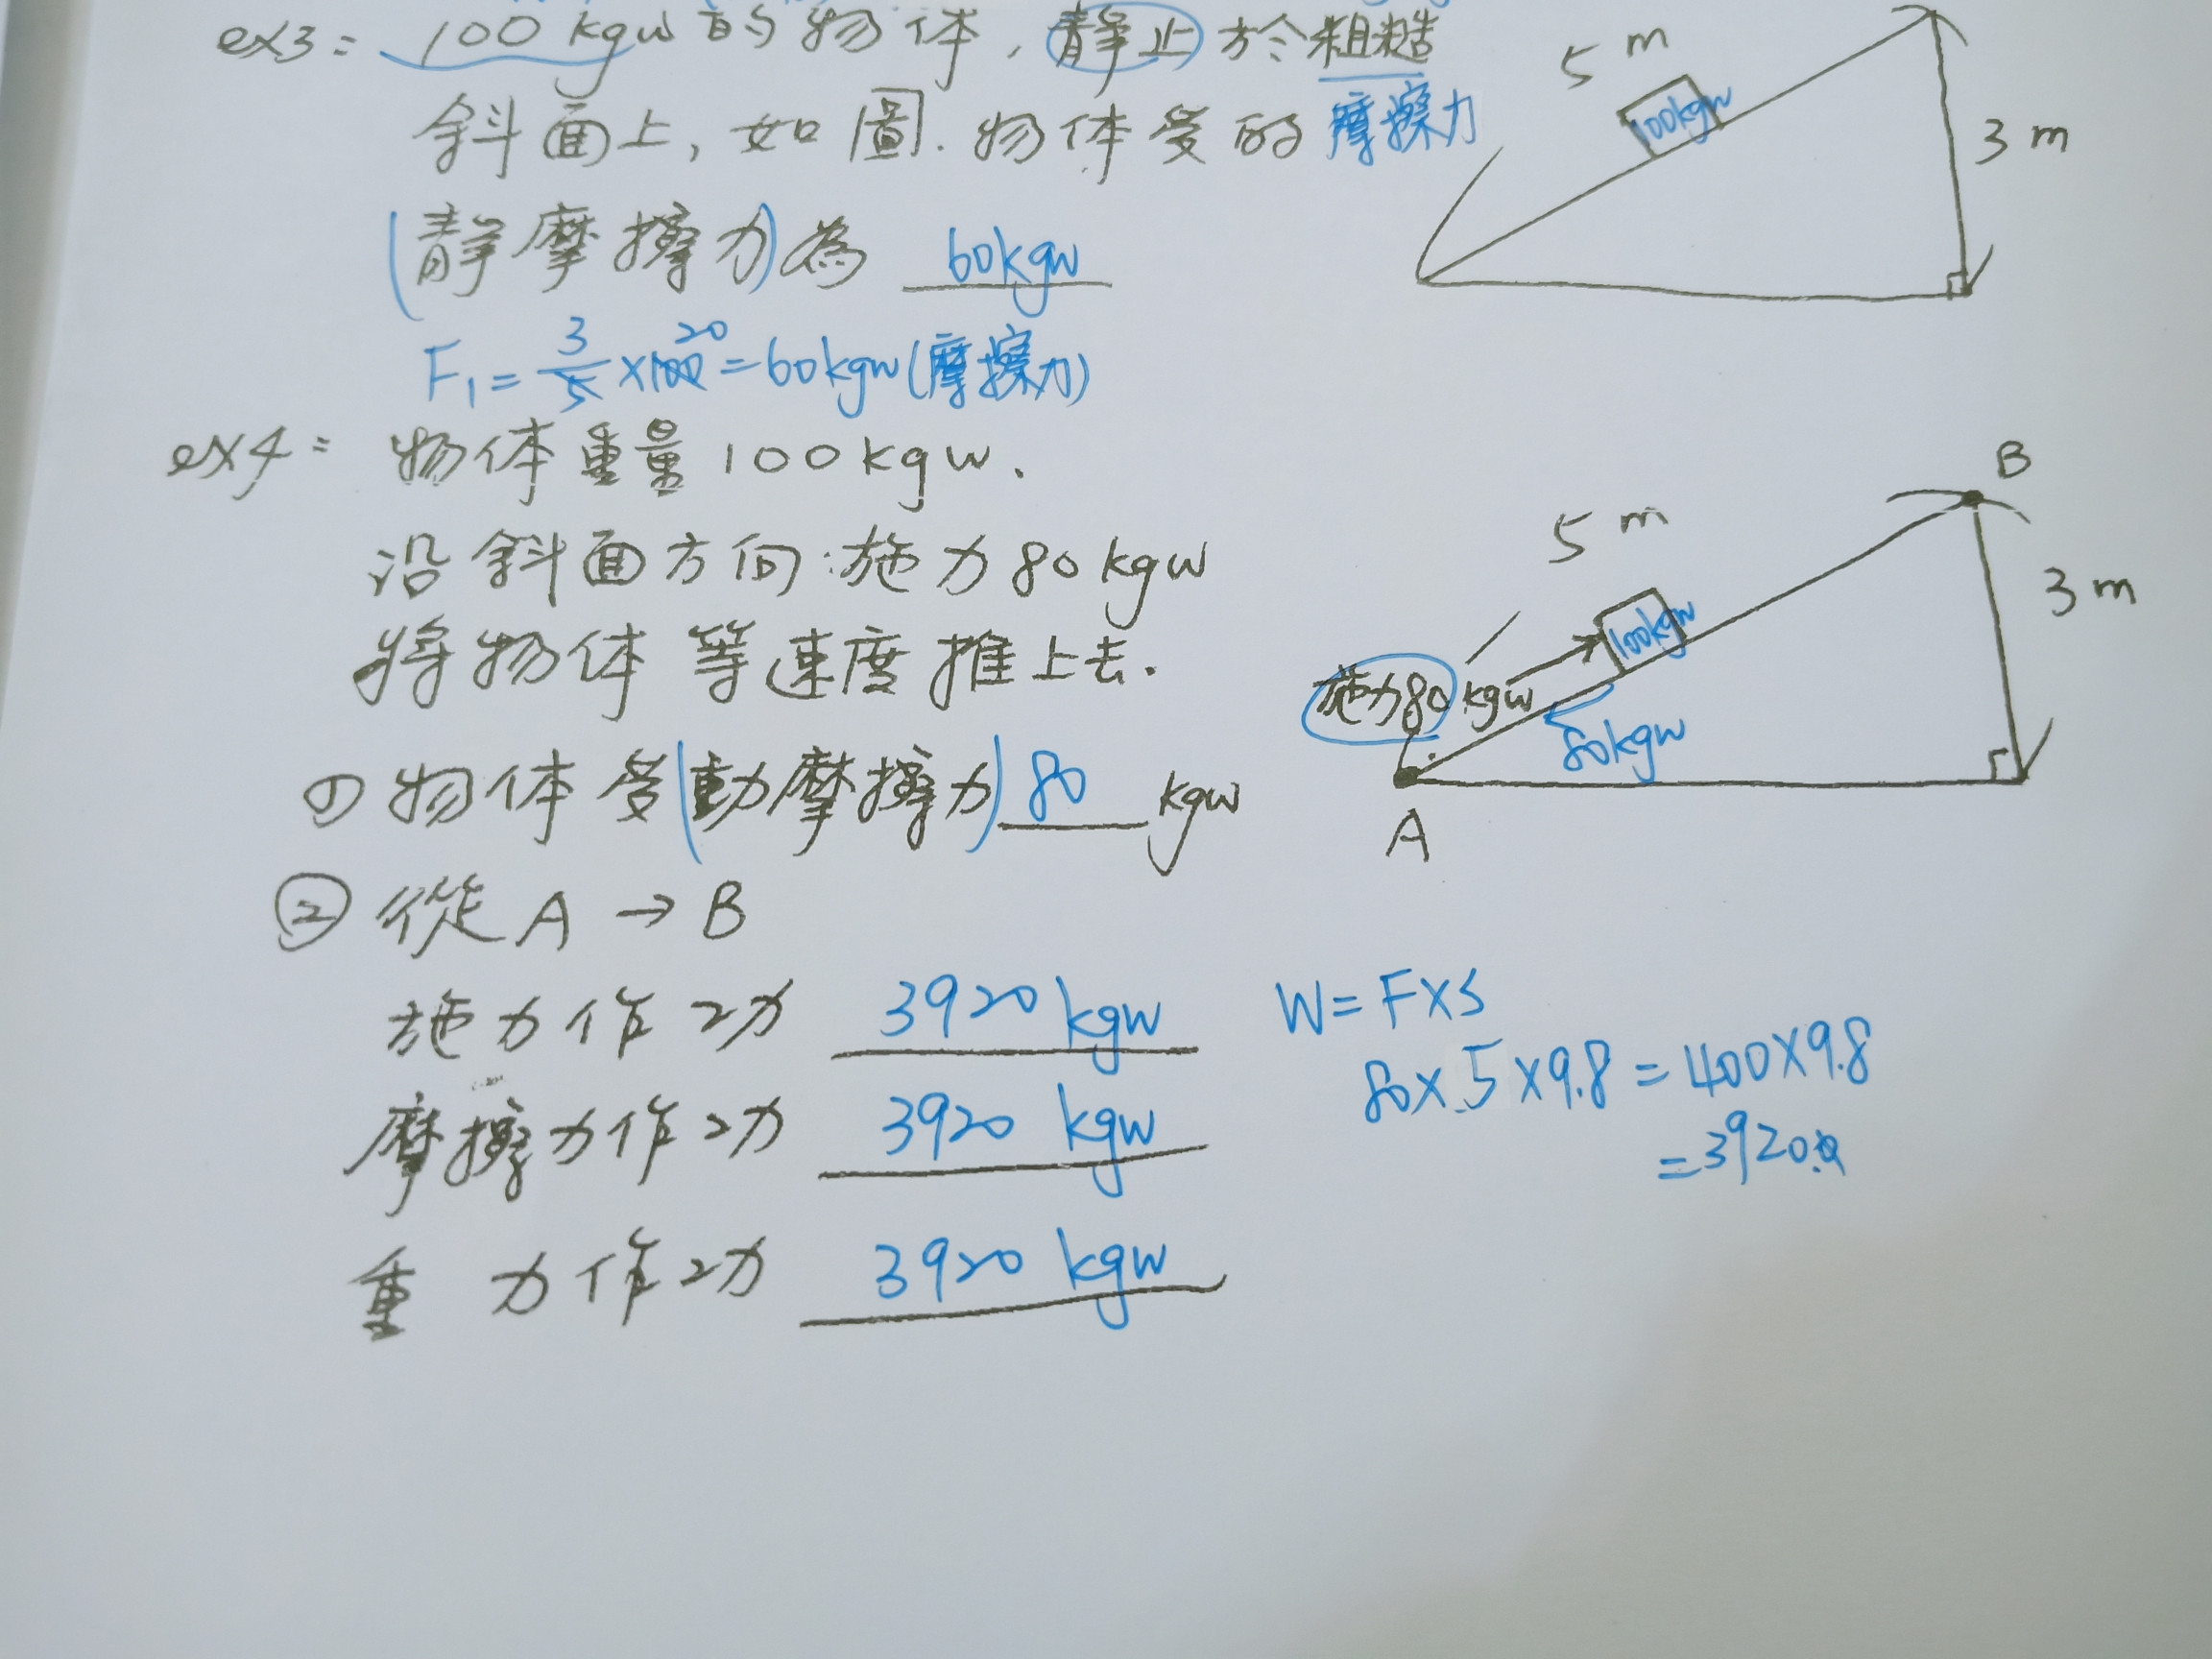 ex3: 100 kgw 的物体,靜止於粗糙
斜面上,如圖.物体受的摩擦力
(靜摩擦力)為 60kgw
F₁ = 3/5 × 100 20 = 60kgw (摩擦力)
5 m
100kgw
3 m
ex4: 物体重量100kgw.
沿斜面方向:施力80kgw
將物体等速度推上去.
① 物体受(動摩擦力) 80 kgw
B
5 m
100kgw
3 m
施力80 kgw
80kgw
A
② 從 A → B
施力作功 3920 kgw
摩擦力作功 3920 kgw
重力作功 3920 kgw
W = F×S
80×5×9.8 = 400×9.8
= 3920